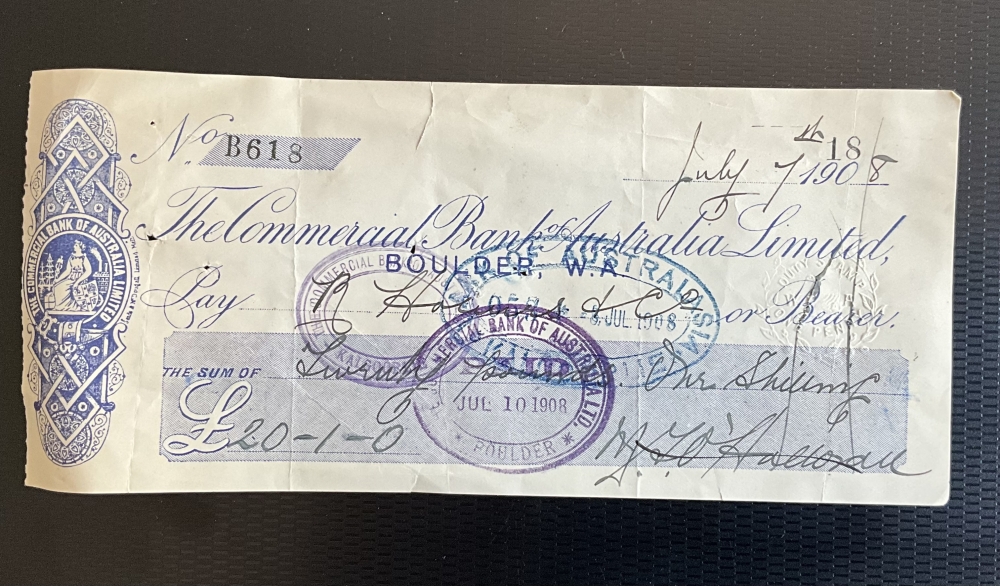 No. B618
18
July 7th 1908
The Commercial Bank of Australia Limited,
BOULDER, W.A.
Pay R & Co or Bearer.
THE SUM OF Twenty pounds One Shilling
£20-1-0
THE COMMERCIAL BANK OF AUSTRALIA LIMITED
COMMERCIAL
KAL
OF AUSTRALASIA
8 JUL 1908
COMMERCIAL BANK OF AUSTRALIA LTD.
JUL 10 1908
* BOULDER *
O'Halloran